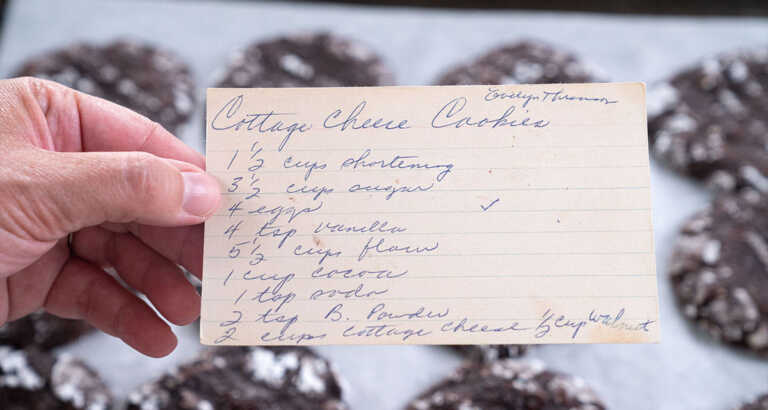 Evelyn Thomson
Cottage Cheese Cookies
1 1/2 cups shortening
3 1/2 cups sugar
4 eggs ✓
4 tsp vanilla
5 1/2 cups flour
1 cup cocoa
1 tsp soda
2 tsp B. Powder
2 cups cottage cheese 1/2 cup walnut